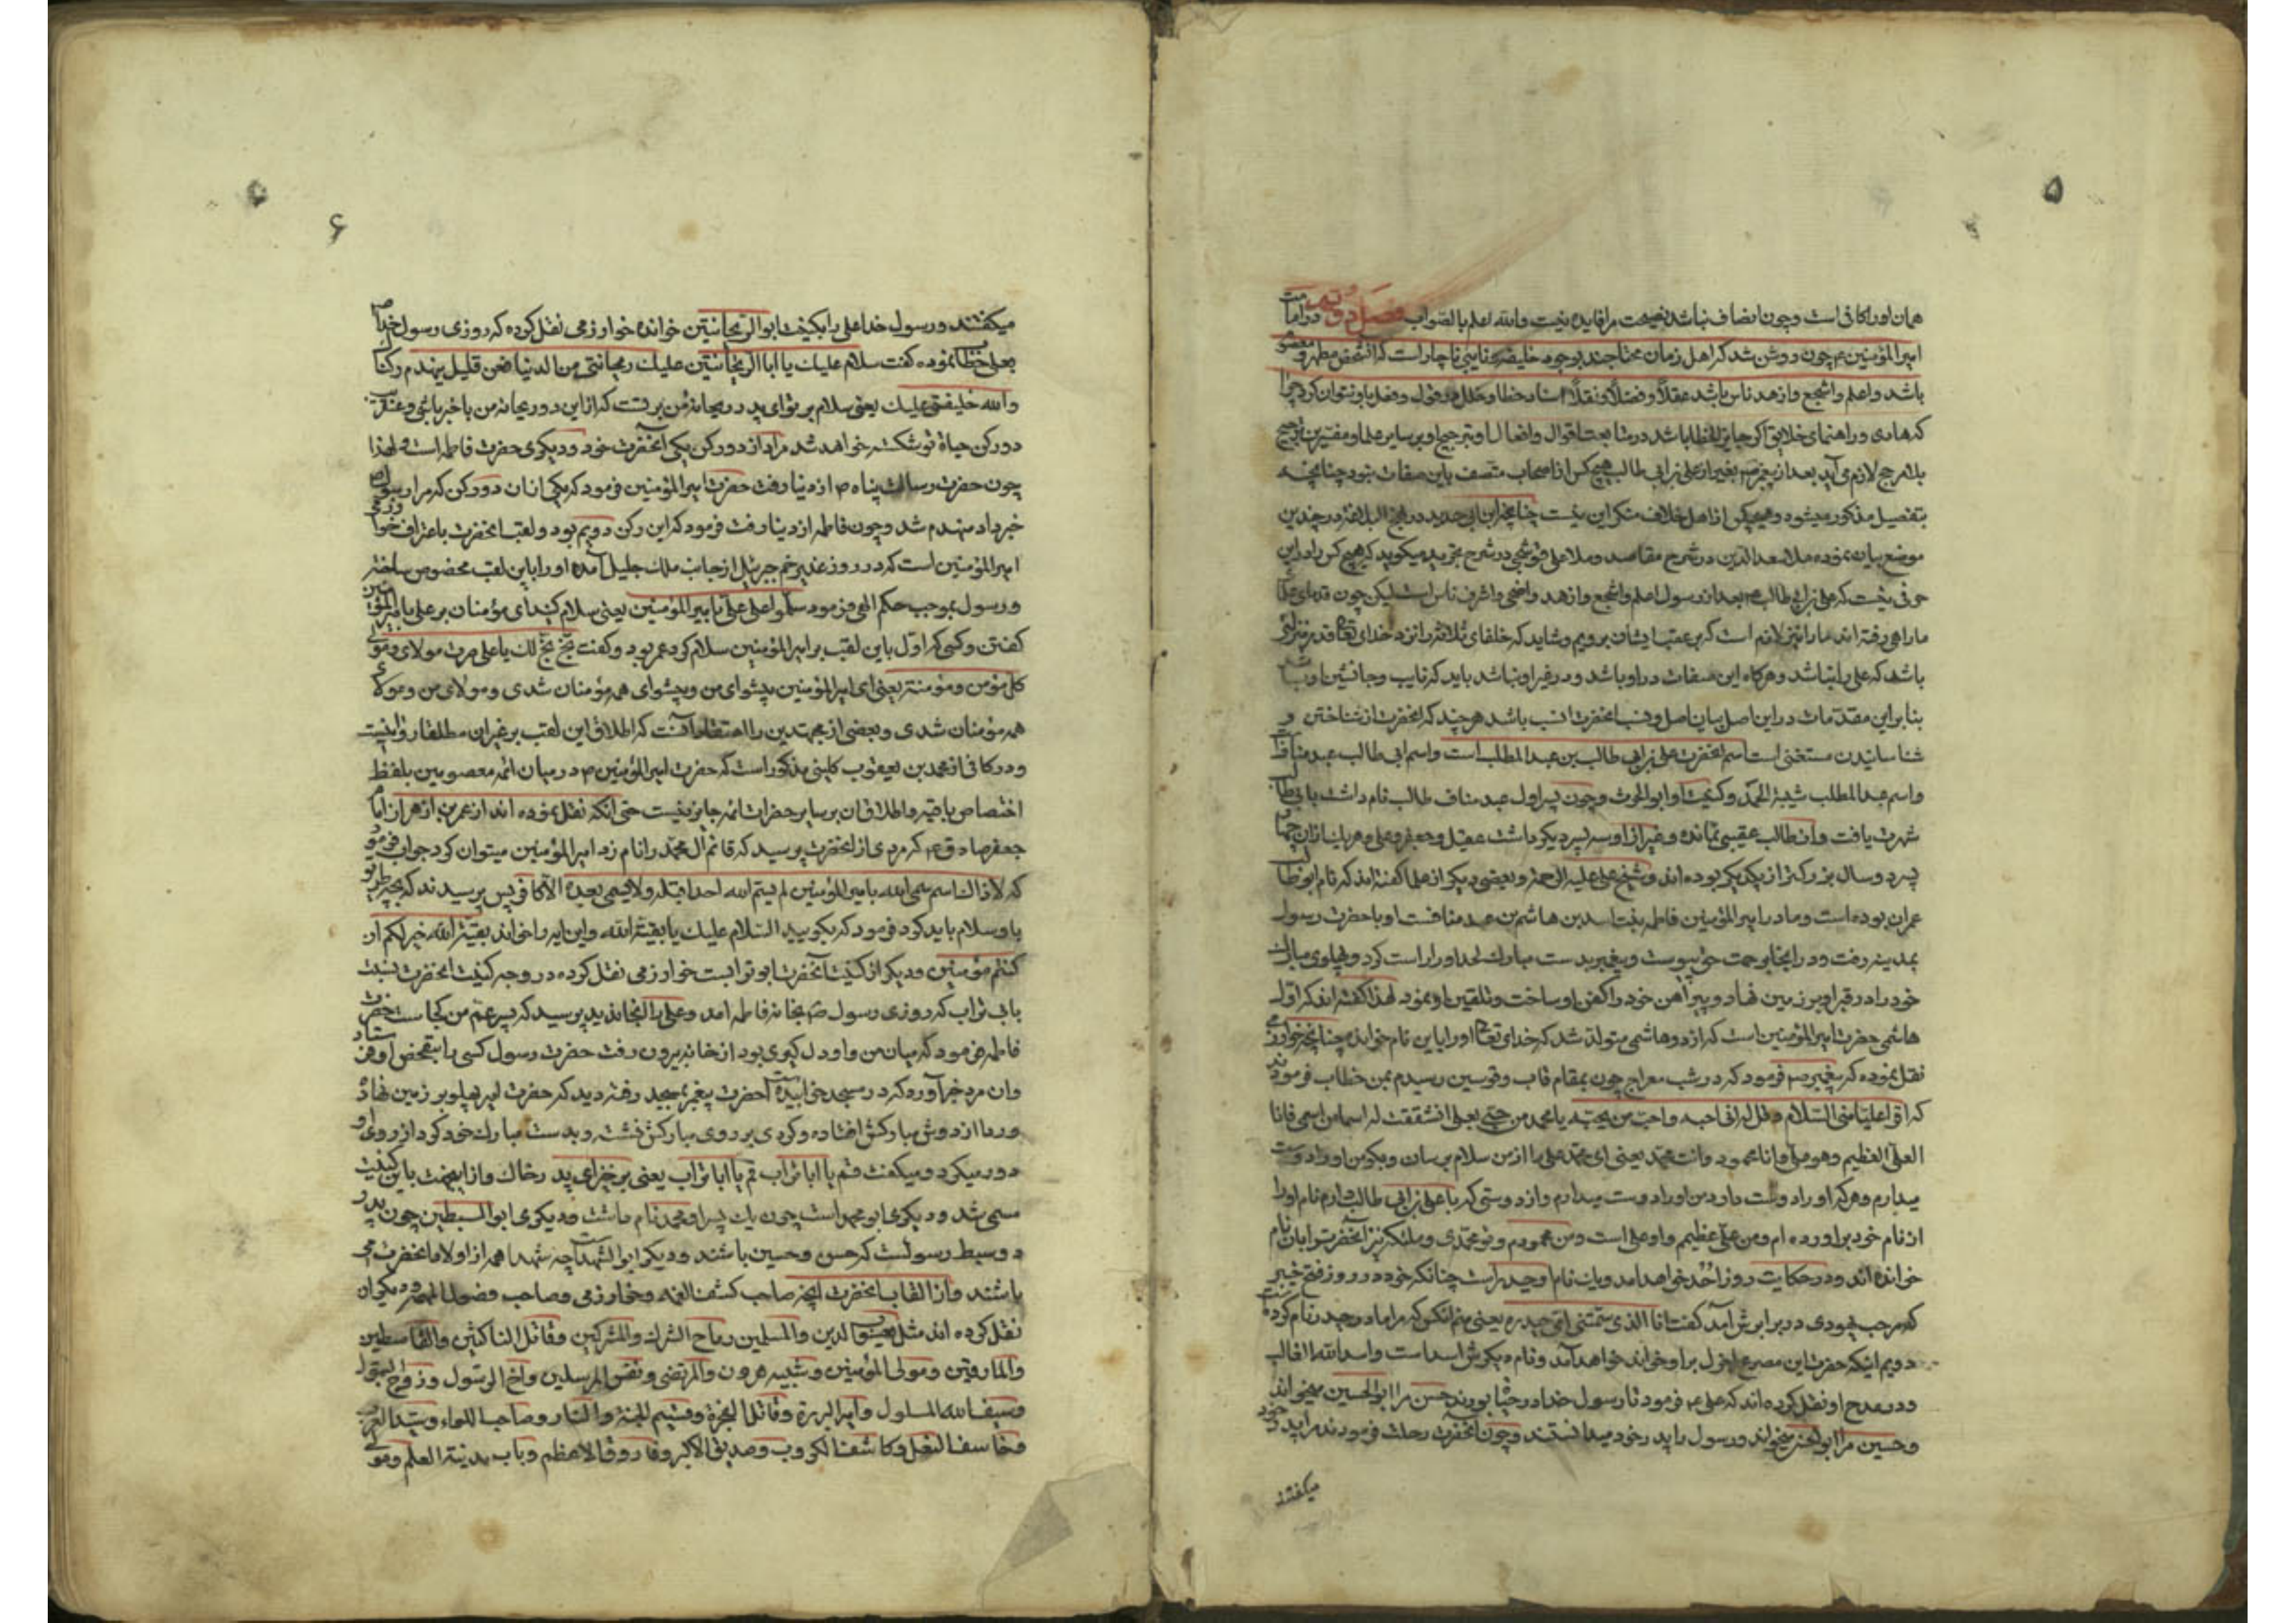 ۵
همان او را کافی است و چون انصاف نباشد نصیحت مرا فایده نیست والله اعلم بالصواب فصل دویم در امامت
امیرالمؤمنین ع چون روشن شد که اهل زمان محتاجند بوجود خلیفه و نایبی ناچار است که آن شخص مطهر و معصوم
باشد و اعلم و اشجع و ازهد ناس باشد عقلاً و فضلاً و نقلاً اسناد خطا و خلل در قول و فعل باو نتوان کرد چرا
که هادی و راهنمای خلایق اگر جایز الخطا باشد در متابعت اقوال و افعال او ترجیح او بر سایر علما و مفسرین ترجیح
بلا مرجح لازم می آید بعد از پیغمبر ص بغیر از علی بن ابی طالب هیچ کس از اصحاب متصف باین صفات نبود چنانچه
بتفصیل مذکور میشود و هیچکس از اهل خلاف منکر این نیست چنانچه ابن ابی حدید در نهج البلاغه در چندین
موضع بیان نموده ملا سعدالدین در شرح مقاصد و ملا علی قوشجی در شرح تجرید میگوید که هیچ کس را در این
حرفی نیست که علی بن ابی طالب ع بعد از رسول اعلم و اشجع و ازهد و افضی و اشرف ناس است لیکن چون قدمای علما
ما راهی رفته اند ما را نیز لازم است که بر عقب ایشان برویم و شاید که خلفای ثلاثه را نزد خدای تعالی قدر و منزلتی
باشد که علی را نباشد و هرگاه این صفات در او باشد و در غیر او نباشد باید که نایب و جانشین او باشد
بنابراین مقدمات در این اصل بیان اصل و نسب آنحضرت انسب باشد هر چند که آنحضرت از شناختن و
شناسانیدن مستغنی است اسم آنحضرت علی بن ابی طالب بن عبدالمطلب است و اسم ابی طالب عبد مناف
و اسم عبدالمطلب شیبة الحمد و کنیت او ابوالحرث و چون پسر اول عبد مناف طالب نام داشت بابی طالب
شهرت یافت و از طالب عقبی نمانده و غیر از او سه پسر دیگر داشت عقیل و جعفر و علی و هر یک از ایشان
پسر ده سال بزرگتر از یکدیگر بوده اند و شیخ علی علیه الرحمة و بعضی دیگر از علما گفته اند که نام ابو طالب
عمران بوده است و مادر امیرالمؤمنین فاطمه بنت اسد بن هاشم بن عبد مناف است او با حضرت رسول
بمدینه رفت و در آنجا برحمت حق پیوست و پیغمبر بدست مبارک لحد او را راست کرد و پهلوی مبارک
خود را در قبر او بر زمین نهاد و پیراهن خود را کفن او ساخت و تلقین او نمود لهذا گفته اند که اول
هاشمی حضرت امیرالمؤمنین است که از دو هاشمی متولد شد که خدای تعالی او را باین نام خوانده چنانچه خوارزمی
نقل نموده که پیغمبر ص فرمود که در شب معراج چون بمقام قاب و قوسین رسیدم بمن خطاب فرمودند
که اقرء علیاً منی السلام و قل له انی احبه و احب من یحبه یا محمد من حبی بعلی انشققت له اسماً من اسمی فانا
العلی العظیم و هو علی و انا محمود و انت محمد یعنی ای محمد علی را از من سلام برسان و بگو من او را دوست
میدارم و هر که او را دوست دارد من او را دوست میدارم و از دوستی که با علی بن ابی طالب دارم نام او را
از نام خود برآورده ام و من علی عظیم و او علی است و من محمودم و تو محمدی و ملائکه نیز آنحضرت را بآن نام
خوانده اند و در حکایت روز احد خواهد آمد و یک نام او حیدر است چنانکه خود در روز فتح خیبر
که مرحب یهودی در برابرش آمد گفت انا الذی سمتنی امی حیدره یعنی منم آنکس که مرا مادر حیدر نام کرده است
دویم اینکه حضرت این مصرع اول بر او خواند خواهد آمد و نام دیگرش اسد است و اسدالله الغالب
و در مدح او نقل کرده اند که علی ع فرمود تا رسول خدا در حیات بودند حسن مرا ابوالحسین میخواند
و حسین مرا ابوالحسن میخواند و رسول را پدر خود میدانستند و چون آنحضرت رحلت فرمودند مرا پدر خود
میگفتند
۶
میگفتند و رسول خدا علی را بکنیت ابوالریحانتین خوانده خوارزمی نقل کرده که روزی رسول خدا ص
بعلی خطاب نموده گفت سلام علیک یا ابا الریحانتین علیک ریحانتی من الدنیا فعن قلیل ینهدم رکناک
والله خلیفتی علیک یعنی سلام بر تو ای پدر دو ریحانه من بر تست که از این دو ریحانه من باخبر باشی و عنقریب
دو رکن حیات تو شکسته خواهد شد مراد از دو رکن یکی آنحضرت خود و دیگری حضرت فاطمه است و لهذا
چون حضرت رسالت پناه ص از دنیا رفت حضرت امیرالمؤمنین فرمود که یکی از آن دو رکن که مرا رسول الله
خبر داد منهدم شد و چون فاطمه از دنیا رفت فرمود که این رکن دویم بود و لقب آنحضرت باعتراف خوارزمی
امیرالمؤمنین است که در روز غدیر خم جبرئیل از جانب ملک جلیل آمده او را باین لقب مخصوص ساخته
و رسول بموجب حکم الهی فرمود سلموا علی علیّ بامیرالمؤمنین یعنی سلام کنید ای مؤمنان بر علی بامیرالمؤمنین
گفتن و کسی که اول باین لقب بر امیرالمؤمنین سلام کرد عمر بود و گفت بخ بخ لک یا علی صرت مولای و مولی
کل مؤمن و مؤمنة یعنی ای امیرالمؤمنین پیشوای من و پیشوای همه مؤمنان شدی و مولای من و مولای
همه مؤمنان شدی و بعضی از مجتهدین را اعتقاد آنست که اطلاق این لقب بر غیر آن مطلقا روا نیست
و در کافی از محمد بن یعقوب کلینی مذکور است که حضرت امیرالمؤمنین ع در میان ائمه معصومین بلفظ
اختصاص یافته و اطلاق آن بر سایر حضرات ائمه جایز نیست حتی آنکه نقل نموده اند از عمر بن ازهر از امام
جعفر صادق ع که مردی از آنحضرت پرسید که قائم آل محمد را نام زد امیرالمؤمنین میتوان کرد جواب فرمود
که لا ذاک اسم سمی الله بامیرالمؤمنین لم یسم الله احداً قبله ولا یسمی بعده الا کافر پس پرسیدند که بچه طریق
باو سلام باید کرد فرمود که بگویید السلام علیک یا بقیة الله و این آیه را خواند بقیة الله خیر لکم ان
کنتم مؤمنین و دیگر از کنیت آنحضرت ابو تراب است خوارزمی نقل کرده در وجه کنیت آنحضرت
بابی تراب که روزی رسول ص بخانه فاطمه آمد و علی را آنجا ندید پرسید که پسر عم من کجاست حضرت
فاطمه فرمود که میان من و او دل گیری بود از خانه بیرون رفت حضرت رسول کسی را بتفحص او فرستاد
و آن مرد خبر آورد که در مسجد خوابیده است حضرت پیغمبر بمسجد رفته دید که حضرت امیر پهلو بر زمین نهاده
و ردا از دوش مبارکش افتاده و گردی بر روی مبارکش نشسته و بدست مبارک خود گرد از روی او
دور میکرد و میگفت قم یا ابا تراب قم یا ابا تراب یعنی برخیز ای پدر خاک و از اینجهت باین کنیت
مسمی شد و دیگری ابو محمد است چون یک پسر او محمد نام داشت و دیگری ابوالسبطین چون پدر
دو سبط رسولست که حسن و حسین باشند و دیگر ابوالشهداء چه شهدا همه از اولاد آنحضرت می
باشند و از القاب آنحضرت آنچه صاحب کشف الغمه و خوارزمی و صاحب فصول المهمه و دیگران
نقل کرده اند مثل یعسوب الدین والمسلمین و ماحی الشرک والمشرکین و قاتل الناکثین والقاسطین
والمارقین و مولی المؤمنین و شبیه هرون والمرتضی و نفس المرسلین و اخ الرسول و زوج البتول
و سیف الله المسلول و امیر البررة و قاتل الفجرة و قسیم الجنة والنار و صاحب اللواء و سید العرب
و خاصف النعل و کاشف الکروب و صدیق الاکبر و فاروق الاعظم و باب مدینة العلم و مولی